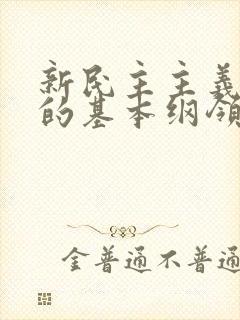 新民主主義
的基本纲领
金普通不普通